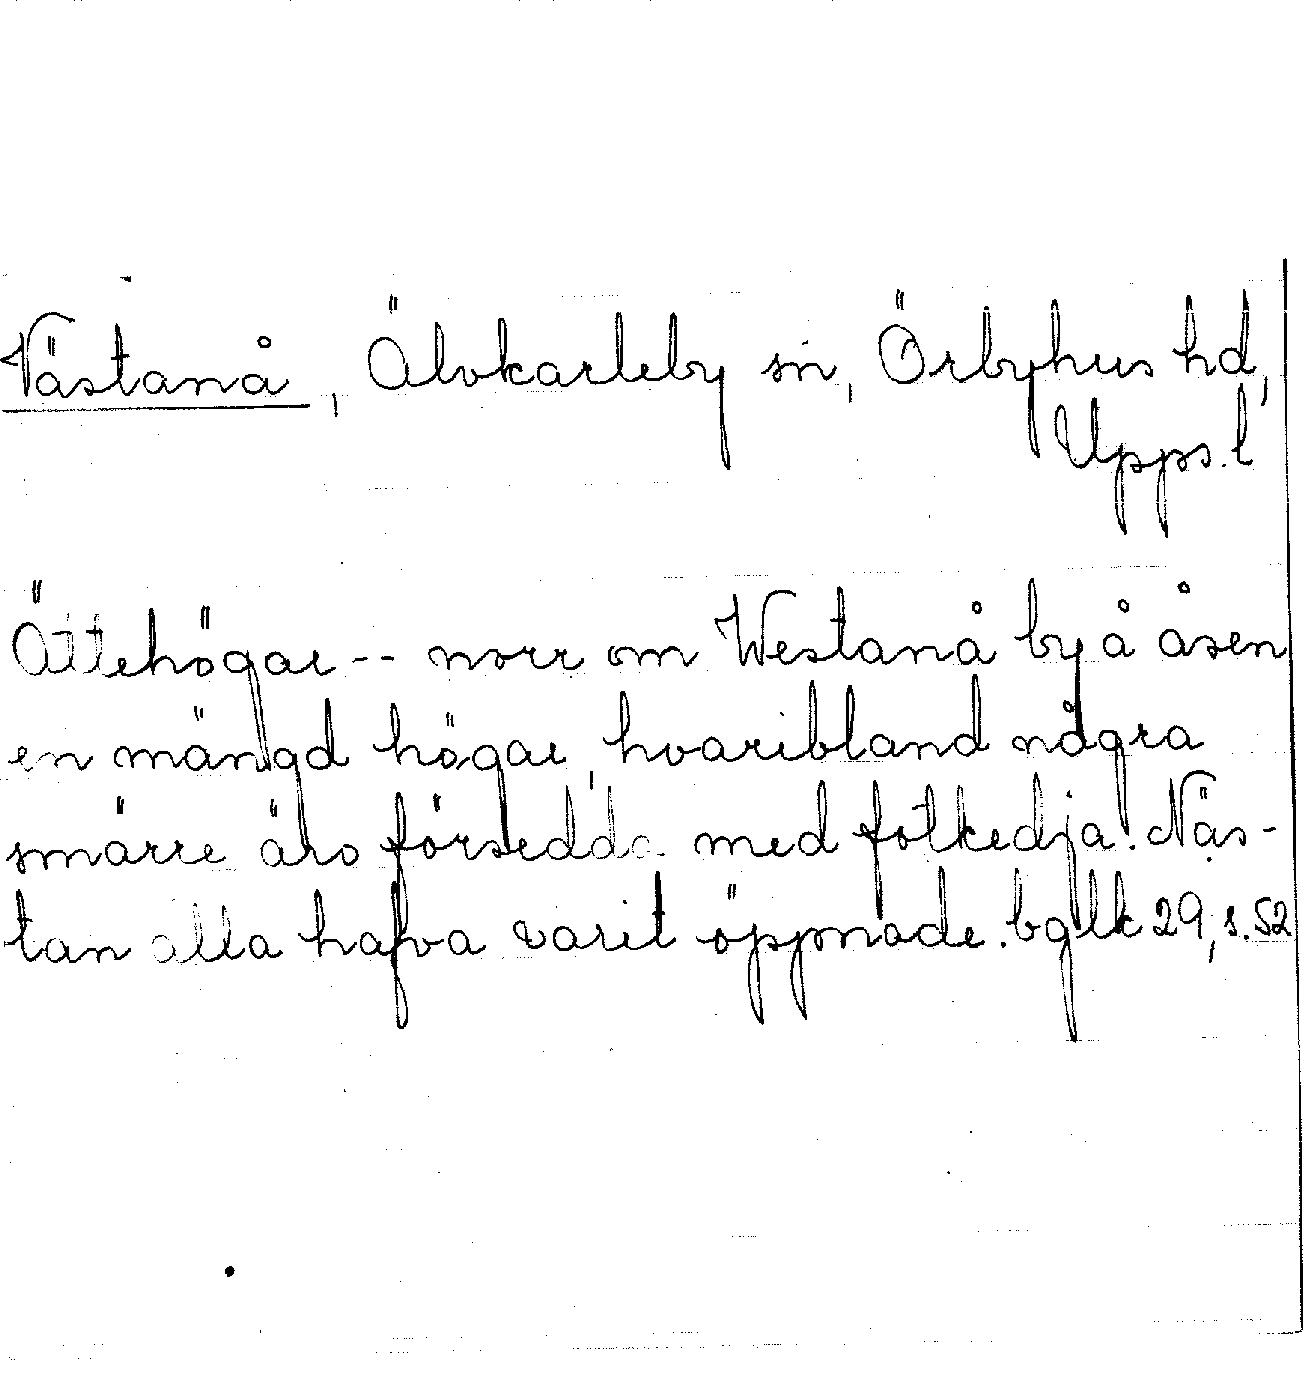 Västanå, Älvkarleby sn, Örbyhus hd,
Upps. l
Ättehögar -- norr om Westanå by å åsen
en mängd högar, hvaribland några
smärre äro försedda med fotkedja. Näs-
tan alla hafva varit öppnade. bglk 29, s. 52